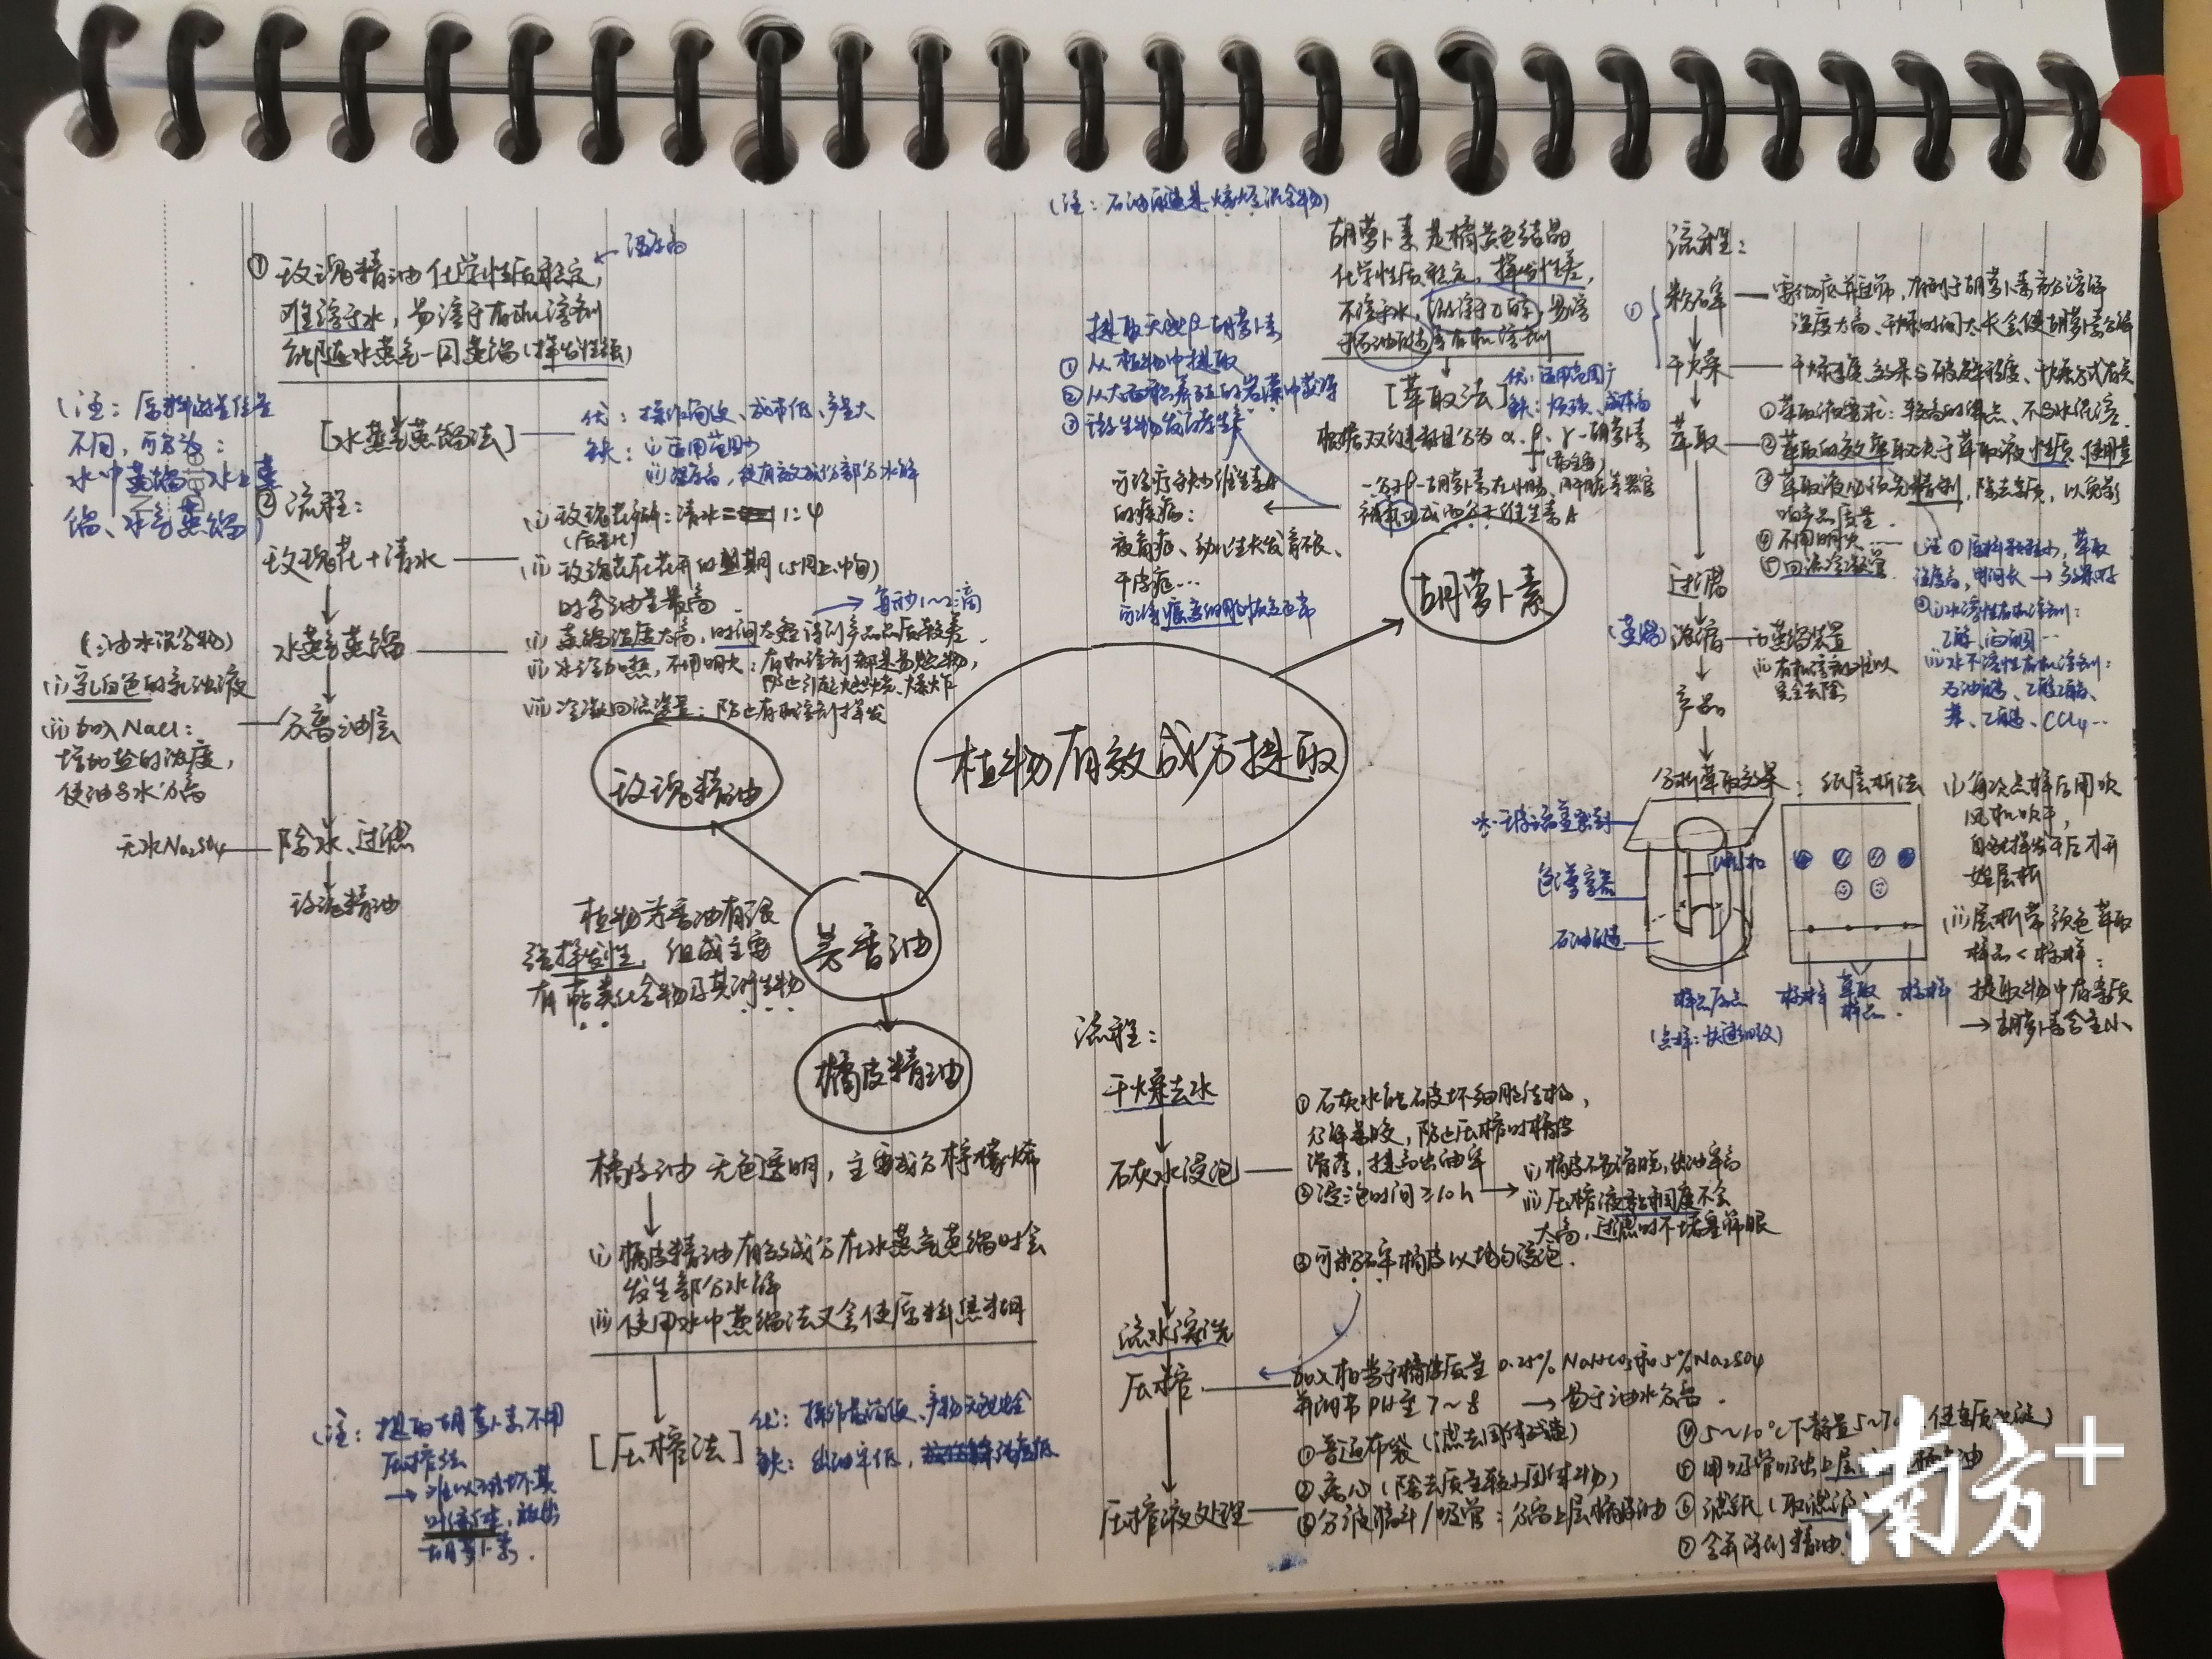 (注：石油醚是烷烃混合物)
① 玫瑰精油化学性质稳定，
← 温度高
难溶于水，易溶于有机溶剂
能随水蒸气一同蒸馏(挥发性强)
[水蒸气蒸馏法]
优：操作简便、成本低、产量大
缺：(i) 适用范围少
(ii) 温度高，使有效成份部分水解
(注：原料放置位置
不同，可分为：
水中蒸馏、水上蒸
馏、水气蒸馏)
② 流程：
玫瑰花+清水
(i) 玫瑰花瓣：清水 1:4
(质量比)
(ii) 玫瑰花在花开的盛期(5月上、中旬)
时含油量最高
水蒸气蒸馏
→ 每秒1~2滴
(i) 蒸馏温度太高，时间太短得到产品品质较差
(ii) 水浴加热，不用明火：有机溶剂都是易燃物，
防止引起燃烧、爆炸
(iii) 冷凝回流装置：防止有机溶剂挥发
(油水混合物)
(i) 乳白色的乳浊液
(ii) 加入NaCl：
增加盐的浓度，
使油与水分离
分离油层
无水Na₂SO₄
除水、过滤
玫瑰精油
玫瑰精油
植物有效成分提取
芳香油
植物芳香油有很
强挥发性，组成主要
有萜类化合物及其衍生物
橘皮精油
橘皮油 无色透明，主要成分柠檬烯
(i) 橘皮精油有效成分在水蒸气蒸馏时会
发生部分水解
(ii) 使用水中蒸馏法又会使原料焦糊
[压榨法]
优：操作简便、产物
缺：出油率低，
(注：提取胡萝卜素不用
压榨法
→ 难以破坏其
叶绿体，放出
胡萝卜素)
胡萝卜素
胡萝卜素是橘黄色结晶
化学性质稳定，挥发性差，
不溶于水，微溶于乙醇，易溶
于石油醚等有机溶剂
[萃取法]
优：适用范围广
缺：成本高
根据双键数目分为α、β、γ-胡萝卜素
(最主要)
一分子β-胡萝卜素在小肠、肝脏等器官
被氧化成两分子维生素A
提取天然β-胡萝卜素
① 从植物中提取
② 从大面积养殖的岩藻中获得
③ 微生物发酵生产
可治疗缺少维生素A
的疾病：
夜盲症、幼儿生长发育不良、
干皮症…
可使癌变细胞恢复正常
流程：
粉碎
需彻底并过筛，有利于胡萝卜素充分溶解
温度太高、干燥时间太长会使胡萝卜素分解
干燥
干燥速度、效果与破碎程度、干燥方式有关
萃取
① 萃取液要求：较高的沸点、不与水混溶
② 萃取的效率取决于萃取液性质、使用量
③ 萃取液必须先精制，除去杂质，以免影
响产品质量
④ 不用明火……
⑤ 回流冷凝管
(注 ① 原料颗粒小，萃取
温度高，时间长 → 效果好
② (i) 水溶性有机溶剂：
乙醇、丙酮…
(ii) 水不溶性有机溶剂：
石油醚、乙酸乙酯、
苯、乙醚、CCl₄…
过滤
(蒸馏) 浓缩
(i) 蒸馏装置
(ii) 有机溶剂难以
完全去除
产品
分析萃取效果：纸层析法
色谱容器
石油醚
样品原点
(点样：快速细致)
标样
萃取
样品
标样
(i) 每次点样后用吹
风机吹干，
自然挥发干后才开
始层析
(ii) 层析带颜色萃取
样品<标样：
提取物中有杂质
→ 胡萝卜素含量小
流程：
干燥去水
石灰水浸泡
① 石灰水能破坏细胞结构，
分解果胶，防止压榨时橘皮
滑脱，提高出油率
② 浸泡时间≥10h
(i) 橘皮不易滑脱，出油率高
(ii) 压榨液黏稠度不会
太高，过滤时不堵塞筛眼
③ 可粉碎橘皮以均匀浸泡
流水漂洗
压榨
加入相当于橘皮质量0.25% NaHCO₃和5% Na₂SO₄
并调节PH至7~8
→ 易于油水分离
压榨液处理
① 普通布袋(滤去固体残渣)
② 离心(除去质量较小固体物)
③ 分液漏斗/吸管：分离上层橘皮油
④ 5~10℃下静置5~7 使杂质沉淀
⑤ 用吸管吸出上层
⑥ 滤纸(取滤液
⑦ 合并得到精油
南方+